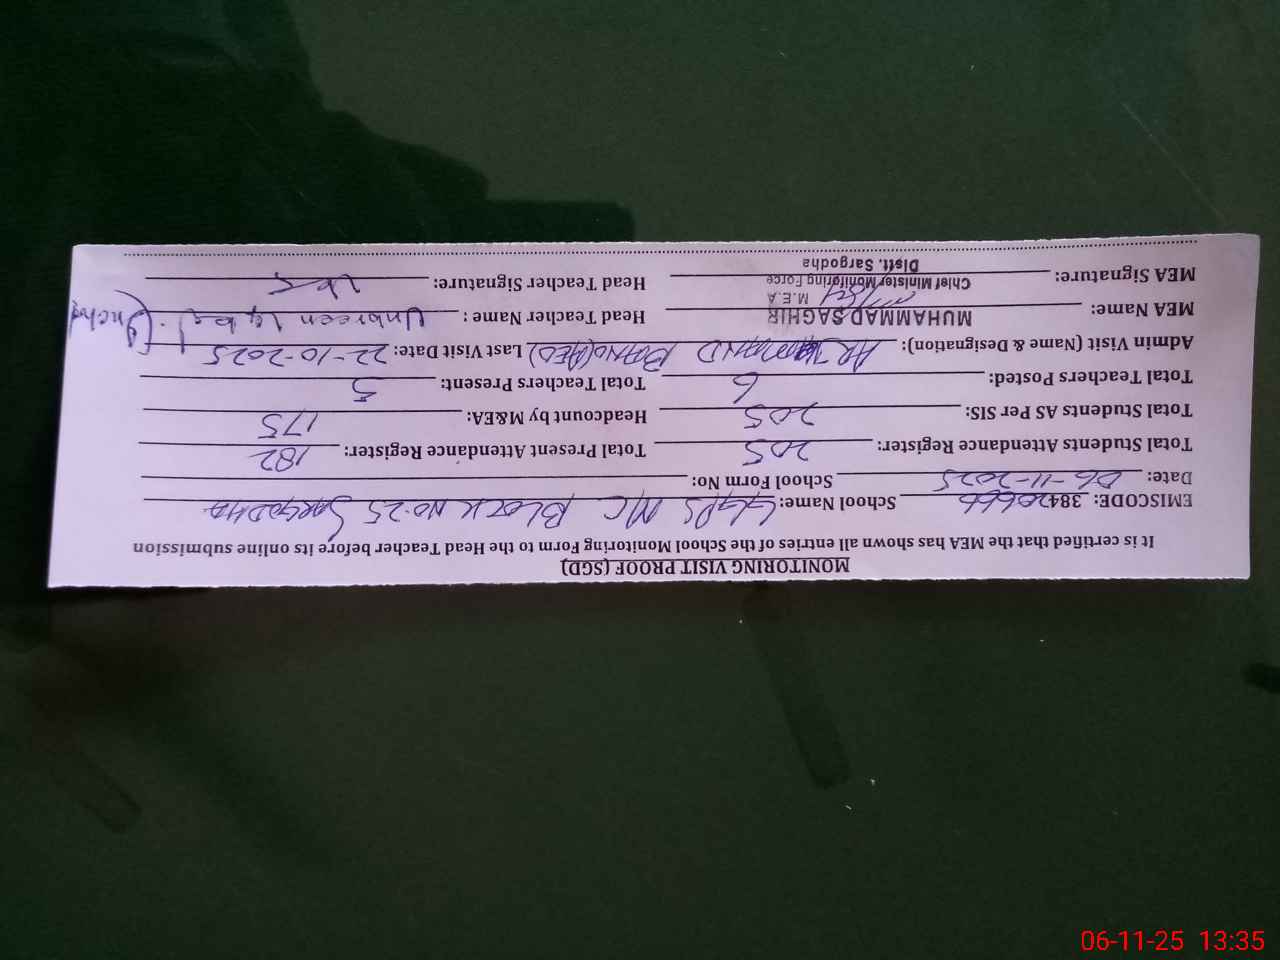 MONITORING VISIT PROOF (SGD)
It is certified that the MEA has shown all entries of the School Monitoring Form to the Head Teacher before its online submission
EMISCODE: 38420666 School Name: GGPS MC BLOCK NO. 25 SARGODHA
Date: 06-11-2025 School Form No:
Total Students Attendance Register: 205 Total Present Attendance Register: 182
Total Students AS Per SIS: 205 Headcount by M&EA: 175
Total Teachers Posted: 6 Total Teachers Present: 5
Admin Visit (Name & Designation): ARJUMMAND BANO(AEO) Last Visit Date: 22-10-2025
MEA Name: MUHAMMAD SAGHIR Head Teacher Name : Unbreen Iqbal (Incharge)
M.E.A
MEA Signature: Chief Minister Monitoring Force Head Teacher Signature:
Distt. Sargodha
06-11-25 13:35